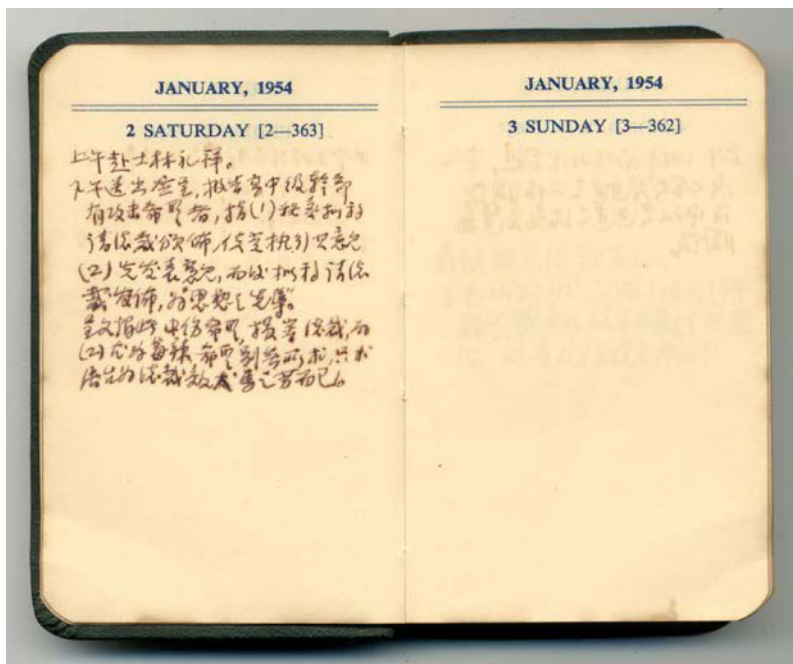 JANUARY, 1954
2 SATURDAY [2—363]
上午赴士林礼拜。
下午送出签呈，报告高中级幹部
有攻击希圣者，指(1)秘事拟移
请总裁颁佈，使党执行其意见
(2)先发表意见，而后拟移请总
裁发佈，为思想之先导。
呈文指此中伤希圣，损害总裁，而
(2)尤为毒辣，希圣别无所求，只求
语出为总裁效犬马之劳而已。
JANUARY, 1954
3 SUNDAY [3—362]